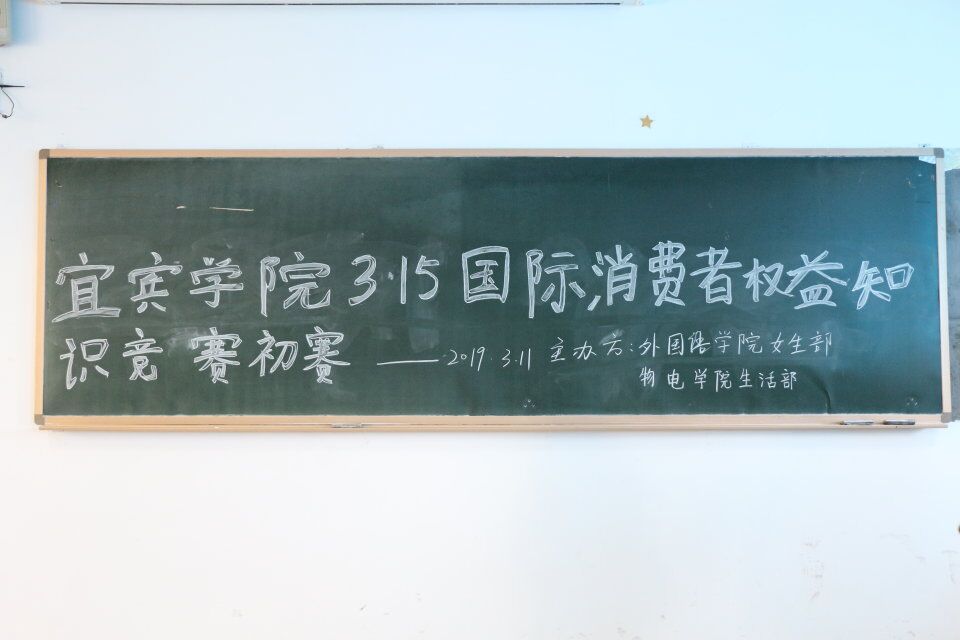 宜宾学院3·15国际消费者权益知
识竞赛初赛 ——2019.3.11 主办方:外国语学院女生部
物电学院生活部